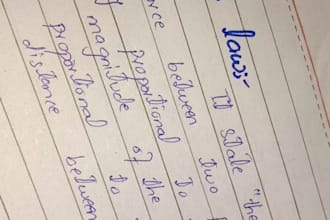 laws:- It state "the
between two
proportional to
magnitude of the
proportional to
distance between